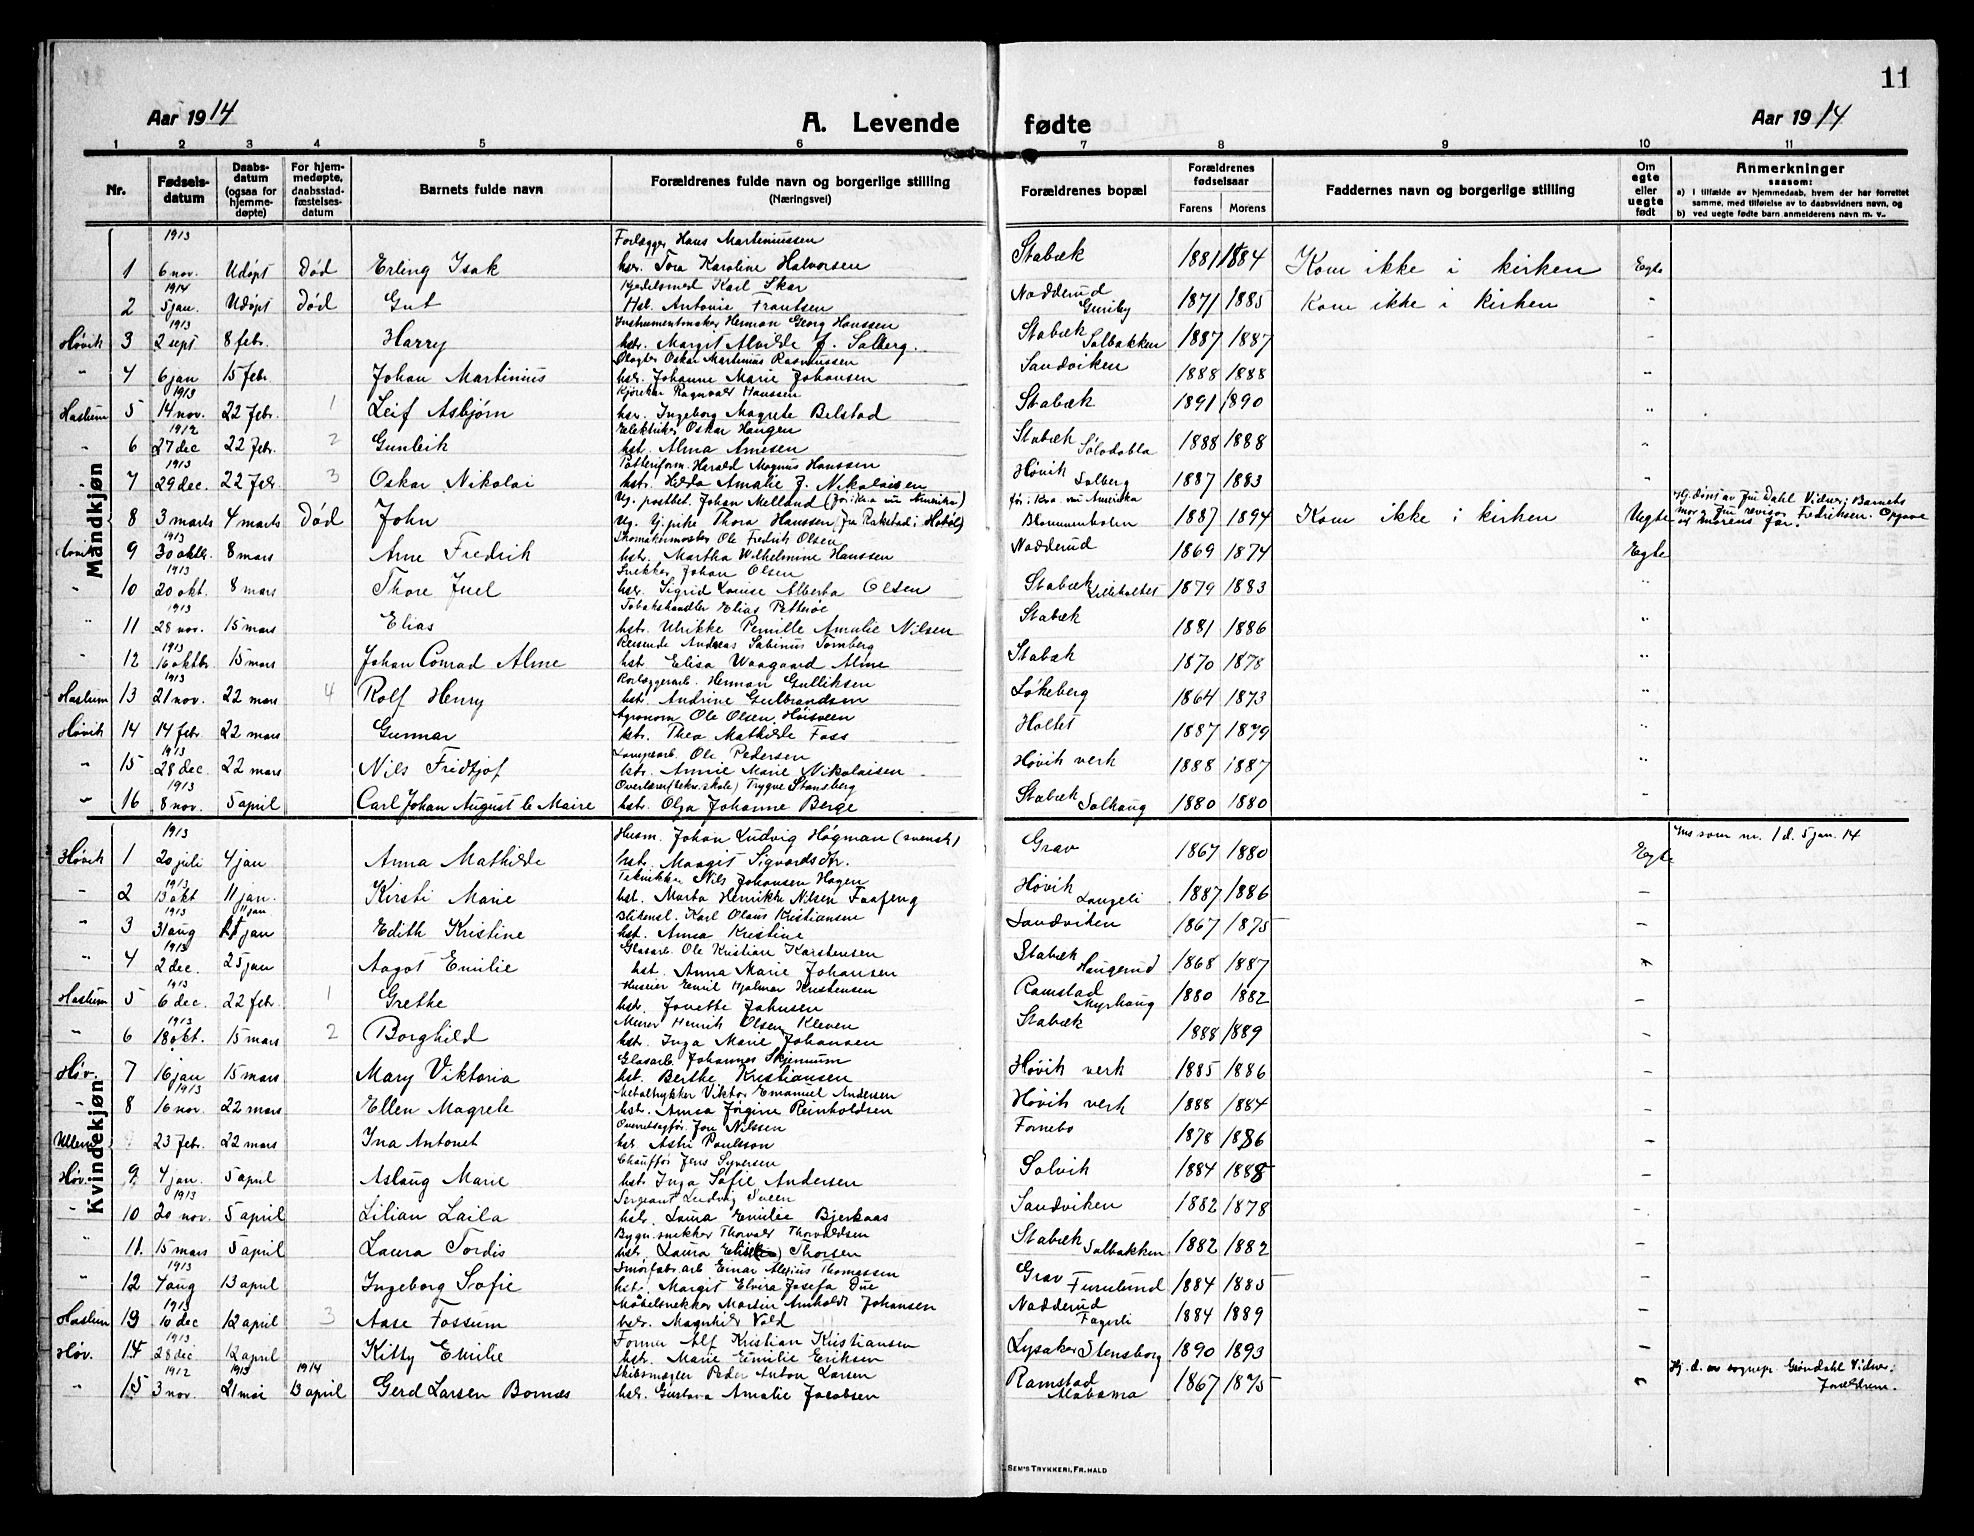 11
Aar 1914 A. Levende fødte Aar 1914
1 2 3 4 5 6 7 8 9 10 11
Nr. Fødselsdatum Daabsdatum (ogsaa for hjemmedøpte) For hjemmedøpte, daabsstadfæstelsesdatum Barnets fulde navn Forældrenes fulde navn og borgerlige stilling (Næringsvei) Forældrenes bopæl Forældrenes fødselsaar Farens Morens Faddernes navn og borgerlige stilling Om egte eller uegte født Anmerkninger saasom:
a) I tilfælde av hjemmedaab, hvem der har forrettet samme, med tilføielse av to daabsvidners navn, og
b) ved uegte fødte barn anmelderens navn m. v..
Mandkjøn
1913 Forlægger Hans Martiniussen
1 6 nov. Udøpt Død Erling Isak hstr. Tora Karoline Halvorsen Stabæk 1881 1884 Kom ikke i kirken Egte
1914 Karl Skar
2 5 jan. Udøpt Død Gut Hst. Antonie Frantsen Nadderud 1871 1885 Kom ikke i kirken "
1913 Instrumentmaker Herman Georg Hanssen
Høvik 3 2 sept 8 febr. Harry hstr. Margit Alvilde J. Solberg. Stabæk Solbakken 1887 1887 "
Oskar Martinius Rasmussen
" 4 6 jan 15 febr. Johan Martinius hstr. Johanne Marie Johansen Sandviken 1888 1888 "
1913 Kjørekar Ragnvald Hanssen
Haslum 5 14 nov. 22 febr. 1 Leif Asbjørn hstr. Ingeborg Magrete Belstad Stabæk 1891 1890 "
1912 Elektriker Oskar Haugen
" 6 27 dec 22 febr. 2 Gunleik hst. Alma Arnesen Stabæk 1888 1888 "
1913 Harald Magnus Hanssen
" 7 29 dec. 22 febr 3 Oskar Nikolai hstr. Hilda Amalie J. Nikolaisen Høvik Solberg 1887 1883 "
Ug. postbet. Johan Melland (før i Kra nu Amerika) før i Kra. nu Amerika
8 3 marts 4 marts Død John Ug. Pj. pike Thora Hanssen fra Rakstad i Hobøl Blommenholm 1887 1894 Kom ikke i kirken Uegte Hj. døpt av fru Dahl Vidner: Barnets mor og fru revisor Fredriksen. Opgave av morens far.
1913 Skomakermester Ole Fredrik Olsen
Høvik 9 30 oktbr. 8 mars Arne Fredrik hst. Martha Wilhelmine Hanssen Nadderud 1869 1874 Egte
1913 Snekker Johan Olsen
" 10 20 okt. 8 mars Thore Juel hstr. Sigrid Louise Alberta Olsen Stabæk Lilleholtet 1879 1883 "
1913 Tobakshandler Elias Petterøe
" 11 28 nov. 15 mars Elias hstr. Ulrikke Pernille Amalie Nilsen Stabæk 1881 1886 "
1913 Reisende Andreas Sabinus Tomberg
" 12 16 oktbr 15 mars Johan Conrad Alme hst. Elisa Waagaard Alme Stabæk 1870 1878 "
1913 Rørlæggerarb. Herman Gulliksen
Haslum 13 21 nov. 22 mars 4 Rolf Henry hst. Andrine Gulbrandsen Løkeberg 1864 1873 "
Agronom Ole Olsen Høisveen
Høvik 14 14 febr 22 mars Gunnar hstr. Thea Mathilde Foss Holtet 1887 1879 "
1913 Lampearb. Ole Pedersen
" 15 28 dec. 22 mars Nils Fridtjof hstr. Annie Marie Nikolaisen Høvik verk 1888 1887 "
1913 Overlærer (tekn. skole) Trygve Stansberg
" 16 8 nov. 5 april Carl Johan August le Maire hstr. Olga Johanne Berge Stabæk Solhaug 1880 1880 "
Kvindekjøn
1913 Husm. Johan Ludvig Høgman (svensk)
Høvik 1 20 juli 4 jan Anna Mathilde hst. Maagit Sigvardsdtr. Grav 1867 1880 Egte Ins som nr. 1 d. 5 jan. 14
1913 Tekniker Nils Johansen Hagen
" 2 13 okt 11 jan. Kirsti Marie hst. Marta Henrikke Nilsen Faafeng Høvik Langeli 1887 1886 "
1913 11 jan Blikensl. Karl Olaus Kristiansen
" 3 31 aug jan Edith Kristine hst. Anna Kristine Sandviken 1867 1875 "
1913 Glasarb. Ole Kristian Karstensen
" 4 2 dec. 25 jan Aagot Emilie hst. Anna Marie Johansen Stabæk Haugerud 1868 1887 "
1913 Huseier Emil Hjalmar Kristensen
Haslum 5 6 dec. 22 febr 1 Grethe hstr. Jonette Johnsen Ramstad Myrhaug 1880 1882 "
1913 Murer Henrik Olsen Kleven
" 6 18 okt. 15 mars 2 Borghild hstr. Inga Marie Johansen Stabæk 1888 1889 "
Glasarb Johannes Skjennum
Høv. 7 16 jan 15 mars Mary Viktoria hst. Berthe Kristiansen Høvik verk 1885 1886 "
1913 Metaltrykker Viktor Emanuel Andersen
" 8 16 nov. 22 mars Ellen Magrete hstr. Anna Jørgine Reinholdsen Høvik verk 1888 1884 "
Overretssagfør. Jon Nilssen
Ullern 23 febr. 22 mars Ina Antonet hstr. Astri Paulsson Fornebo 1878 1886 "
Chauffør Jens Syversen
Høv. 9 4 jan. 5 april Aslaug Marie hst. Inga Sofie Andersen Solvik 1884 1888 "
1913 Sergeant Ludvig Sveen
" 10 20 nov. 5 april Lilian Laila hstr. Laura Emilie Bjerkaas Sandviken 1882 1878 "
Bygn. snikker Thorvald Thorvaldsen
" 11. 15 mars 5 april Laura Tordis hstr. Laura Thorsen Stabæk Solbakken 1882 1882 "
1913 Smørfabr. arb Einar Alexius Thomassen
" 12 4 aug 13 april Ingeborg Sofie hst. Margit Elvira Josefa Due Grav Furulund 1884 1885 "
1913 Møbelsnekker Martin Arnholdt Johansen
Haslum 13 10 dec 12 april 3 Aase Fossum hstr. Magnhild Vold Nadderud Fagerli 1884 1889 "
1913 Former Alf Kristian Kristiansen
Høv. 14 28 dec 12 april Kitty Emilie hstr. Marie Emilie Eriksen Lysaker Stensborg 1890 1893 "
1912 1913 1914 Skibsmægler Peder Anton Larsen
" 15 3 nov. 21 mai 13 april Gerd Larsen Bornæs hstr. Gustava Amalie Jacobsen Ramstad Alabama 1867 1875 " Hj. d. av sognepr. Grøndahl Vidner: Forældrene.
SEM'S TRYKKERI, FR. HALD